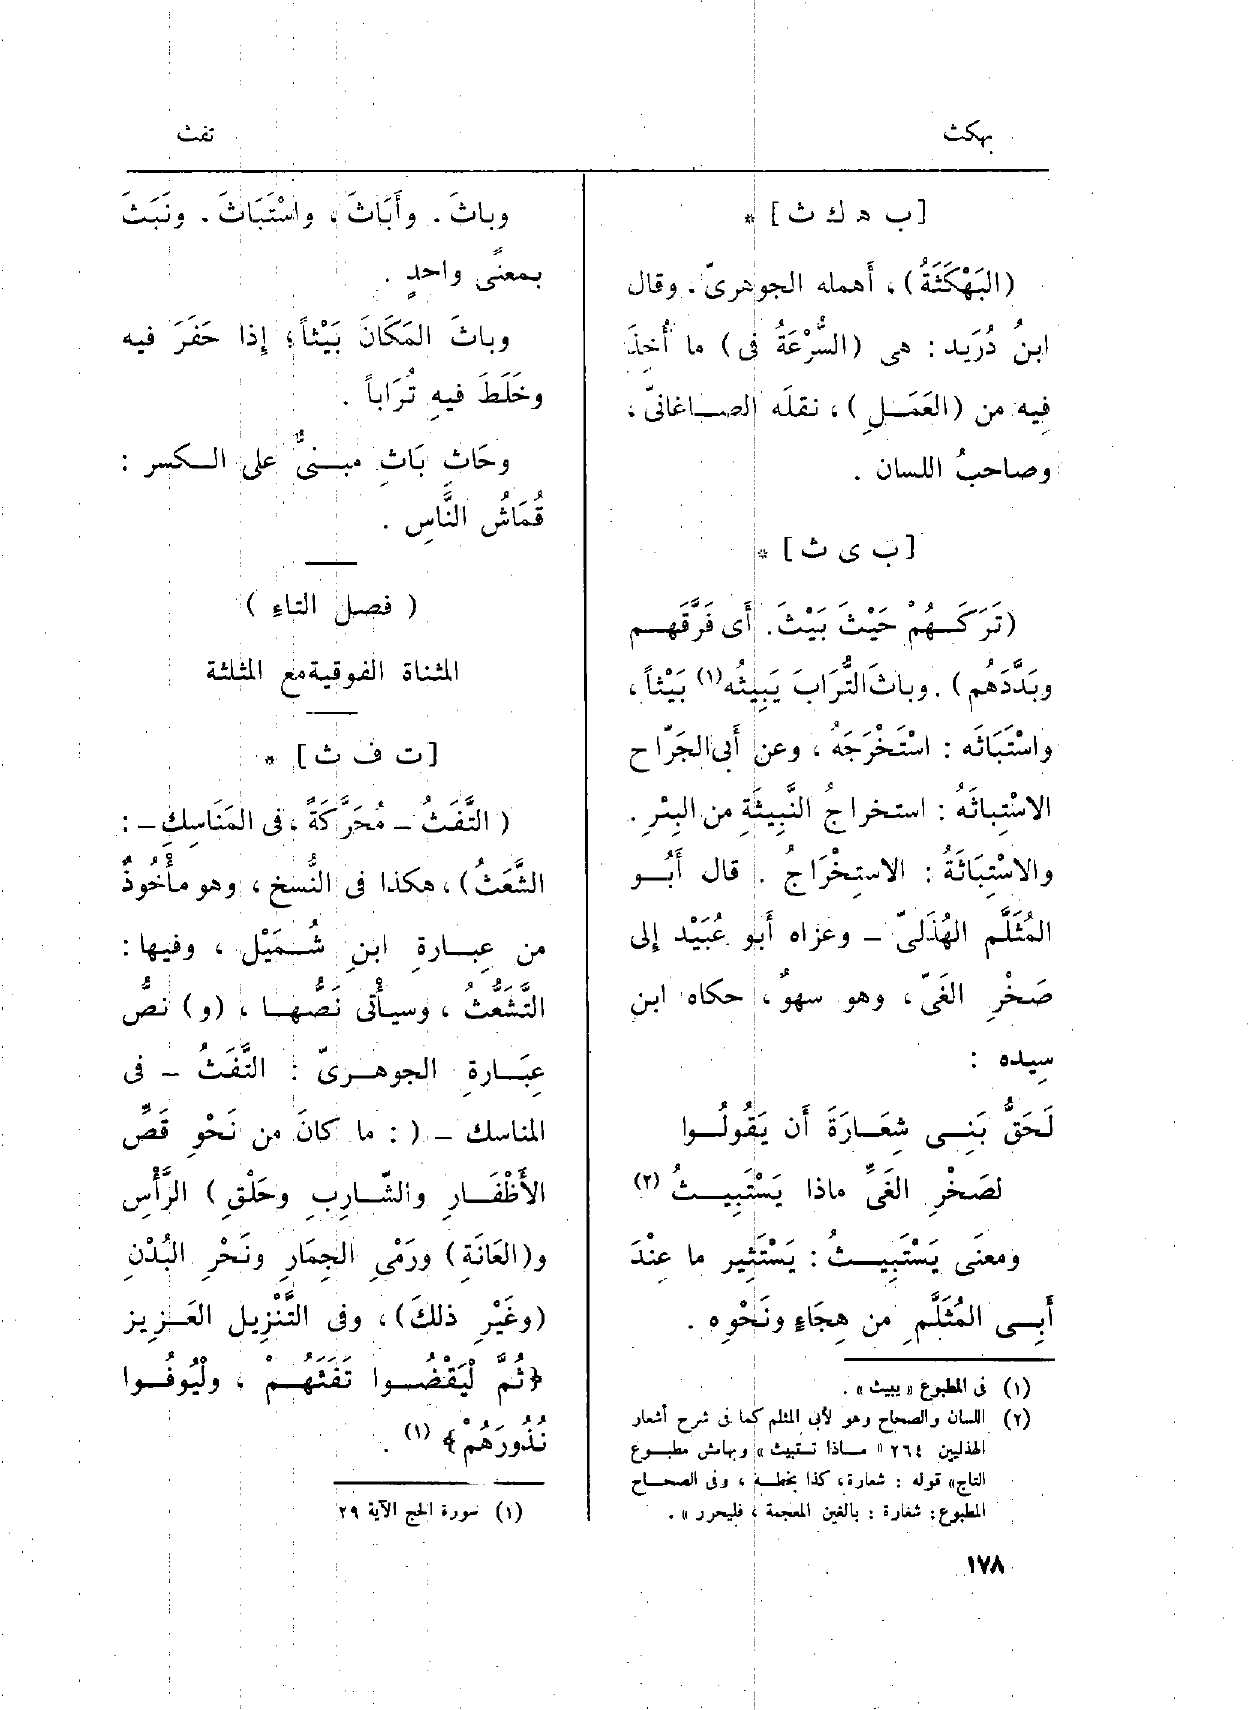 بهكث
تفث
[ب ه ك ث] *
(البَهْكَثَةُ)، أهمله الجوهرىّ. وقال
ابنُ دُرَيد: هى (السُّرْعَةُ فى) ما أُخِذَ
فِيه من (العَمَلِ)، نقلَه الصاغانىّ،
وصاحبُ اللسان .
[ب ى ث] *
(تَرَكَهُمْ حَيْثَ بَيْثَ. أَى فَرَّقَهم
وبَدَّدَهُم). وباثَ التُّرَابَ يَبِيثُه(١) بَيْثاً،
واسْتَبَاثَه: اسْتَخْرَجَهُ، وعن أَبى الجَرّاح
الاسْتِباثَهُ: استخراجُ النَّبِيثَةِ من البِئْرِ.
والاسْتِبَاثَةُ: الاستِخْرَاجُ. قال أَبُو
المُثَلَّم الهُذَلىّ - وعزاه أَبو عُبَيْد إلى
صَخْرِ الغَىّ، وهو سهوٌ، حكاه ابن
سِيده:
لَحَقُّ بَنِى شِعَارَةَ أَن يَقُولُوا
لصَخْرِ الغَىِّ ماذا يَسْتَبِيثُ(٢)
ومعنَى يَسْتَبِيثُ: يَسْتَثِير ما عِنْدَ
أَبِى المُثَلَّمِ من هِجَاءٍ ونَحْوِه .
(١) فى المطبوع «يبيث» .
(٢) اللسان والصحاح وهو لأبى المثلم كما فى شرح أشعار
الهذليين ٢٦٤ «ماذا تستبيث» وبهامش مطبوع
التاج» قوله: شعارة، كذا بخطه، وفى الصحاح
المطبوع: شغارة: بالغين المعجمة، فليحرر» .
وباثَ. وأَبَاثَ، واسْتَبَاثَ. ونَبَثَ
بمعنًى واحدٍ .
وباثَ المَكَانَ بَيْثاً؛ إذا حَفَرَ فيه
وخَلَطَ فيهِ تُرَاباً .
وحَاثِ بَاثِ مبنىٌّ على الكسر:
قُمَاشُ النَّاسِ .
(فصل التاء)
المثناة الفوقية مع المثلثة
[ت ف ث] *
(التَّفَثُ - مُحَرَّكَةً، فى المَنَاسِكِ -:
الشَّعَثُ)، هكذا فى النُّسخ، وهو مأْخُوذٌ
من عِبارةِ ابنِ شُمَيْل، وفيها:
التَّشَعُّثُ، وسيأْتى نَصُّها، (و) نصُّ
عِبَارةِ الجوهرىّ: التَّفَثُ - فى
المناسك - (: ما كانَ من نَحْوِ قَصِّ
الأَظْفَارِ والشّارِبِ وحَلْقِ) الرَّأْسِ
و(العَانَةِ) ورَمْىِ الجِمَارِ ونَحْرِ البُدْنِ
(وغَيْرِ ذلكَ)، وفى التَّنْزِيل العَزِيز
﴿ثُمَّ لْيَقْضُوا تَفَثَهُمْ، ولْيُوفُوا
نُذُورَهُمْ﴾(١) .
(١) سورة الحج الآية ٢٩
١٧٨